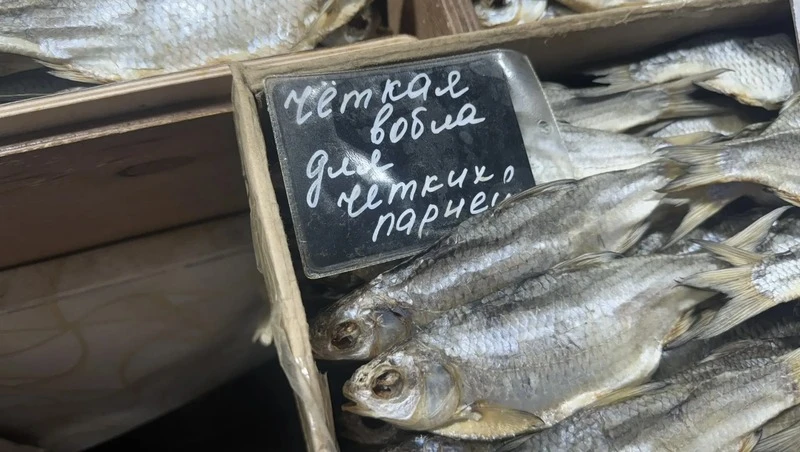 чёткая
вобла
для
чётких
парней